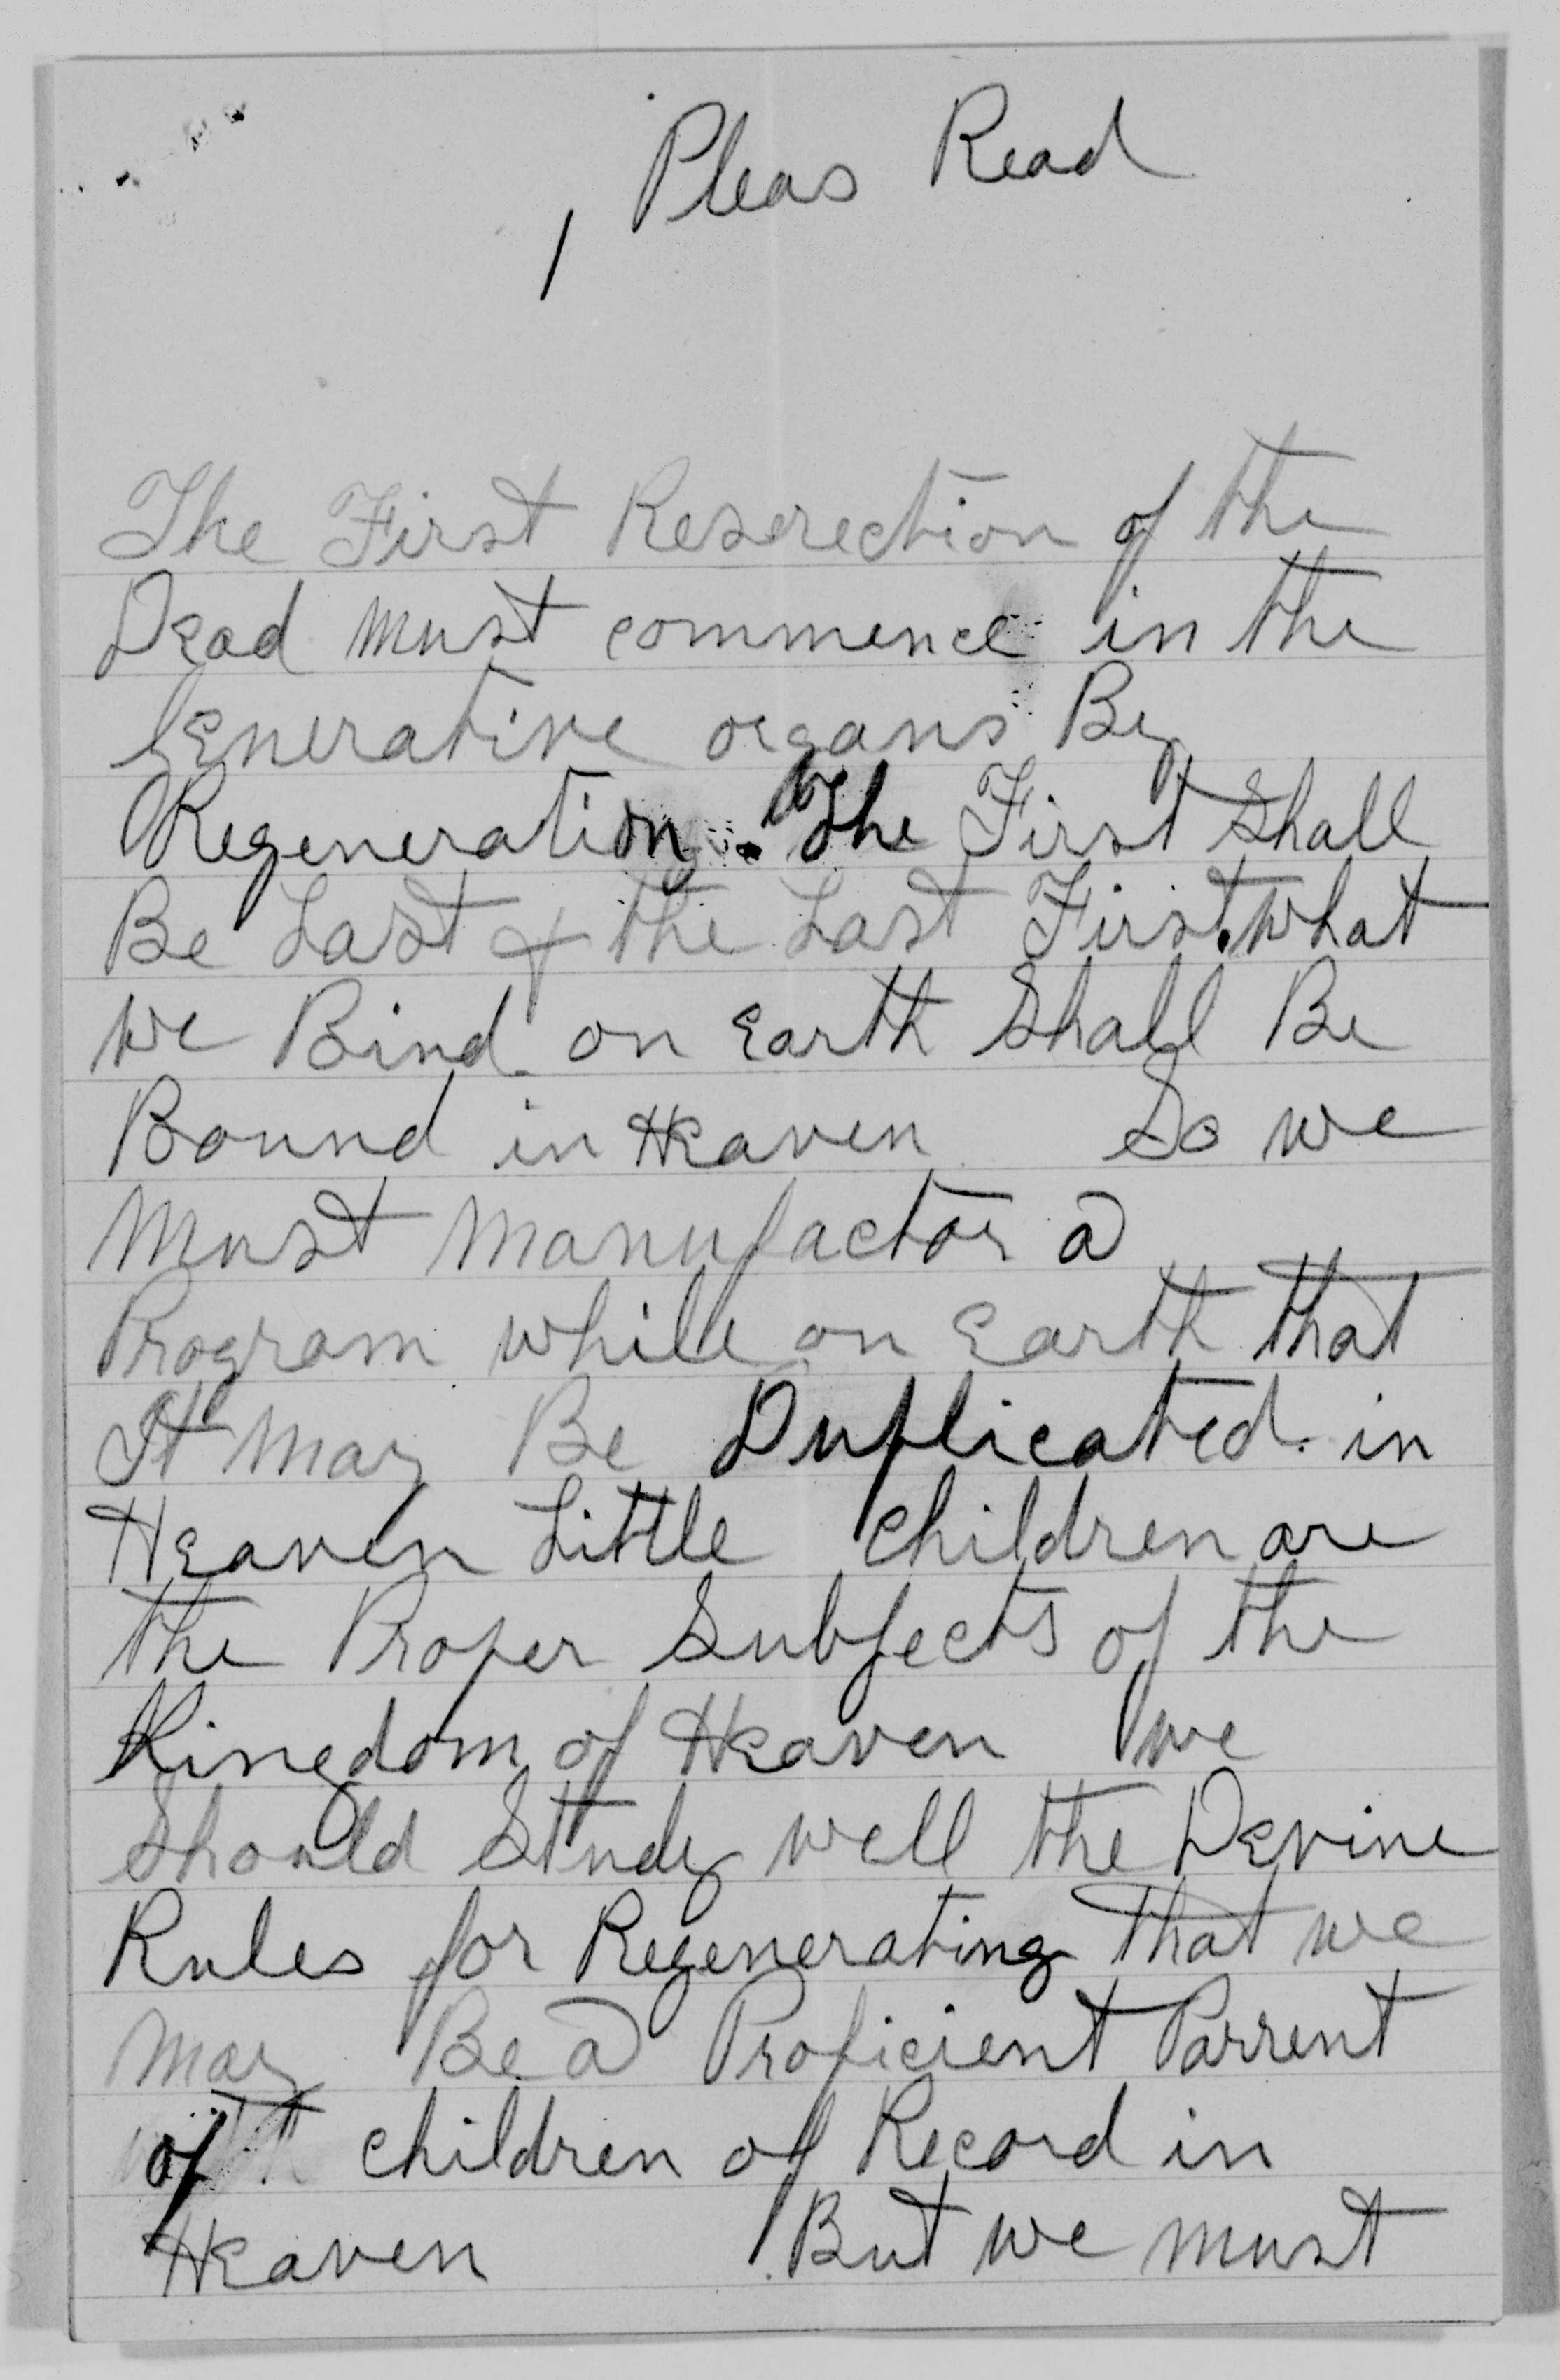 Pleas Read
1
The First Reserection of the
Dead must commence in the
Generative organs By
Regeneration. The First Shall
Be Last & the Last First. what
we Bind on Earth Shall Be
Bound in Heaven So we
Must Manufactor a
Program while on Earth that
It May Be Duplicated in
Heaven Little children are
the Proper Subjects of the
Kingdom of Heaven we
Should Study well the Devine
Rules for Regenerating that we
may Be a Proficient Parrent
of children of Record in
Heaven But we must